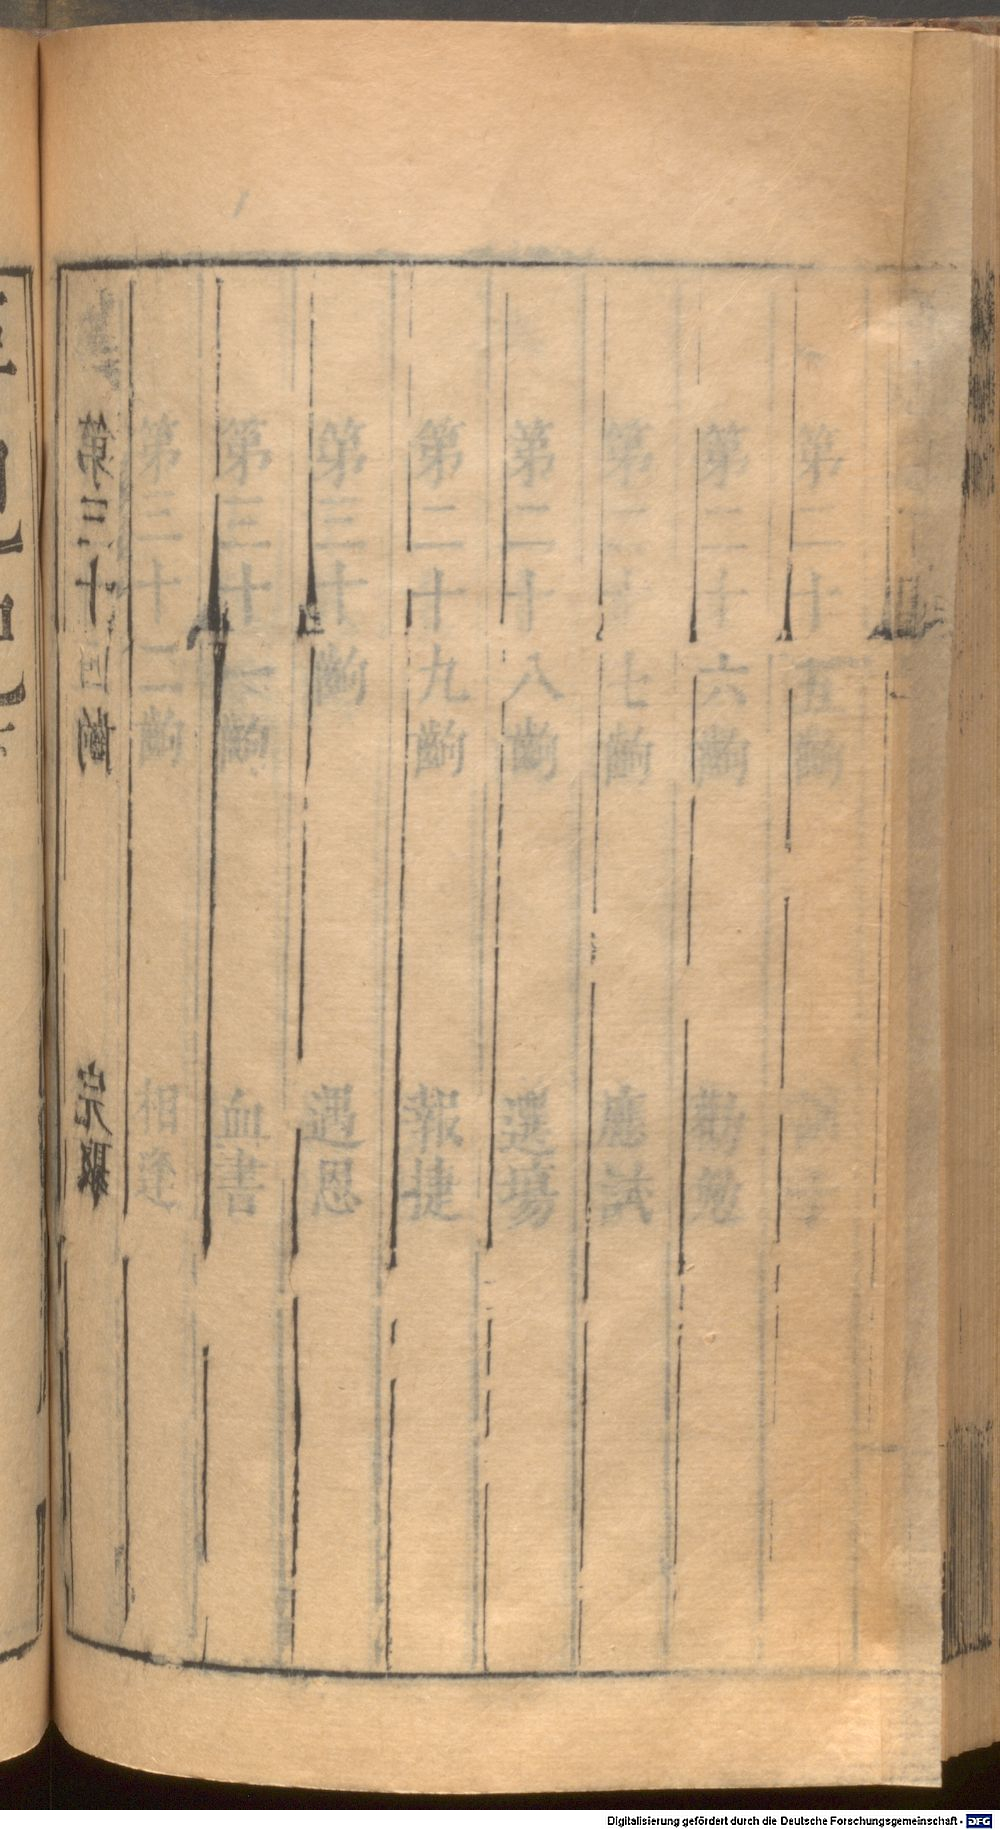 第二十五齣
第二十六齣 勸勉
第二十七齣 應試
第二十八齣 選塲
第二十九齣 報捷
第三十齣 遇恩
第三十一齣 血書
第三十二齣 相逢
第三十四齣 完聚
Digitalisierung gefördert durch die Deutsche Forschungsgemeinschaft - DFG